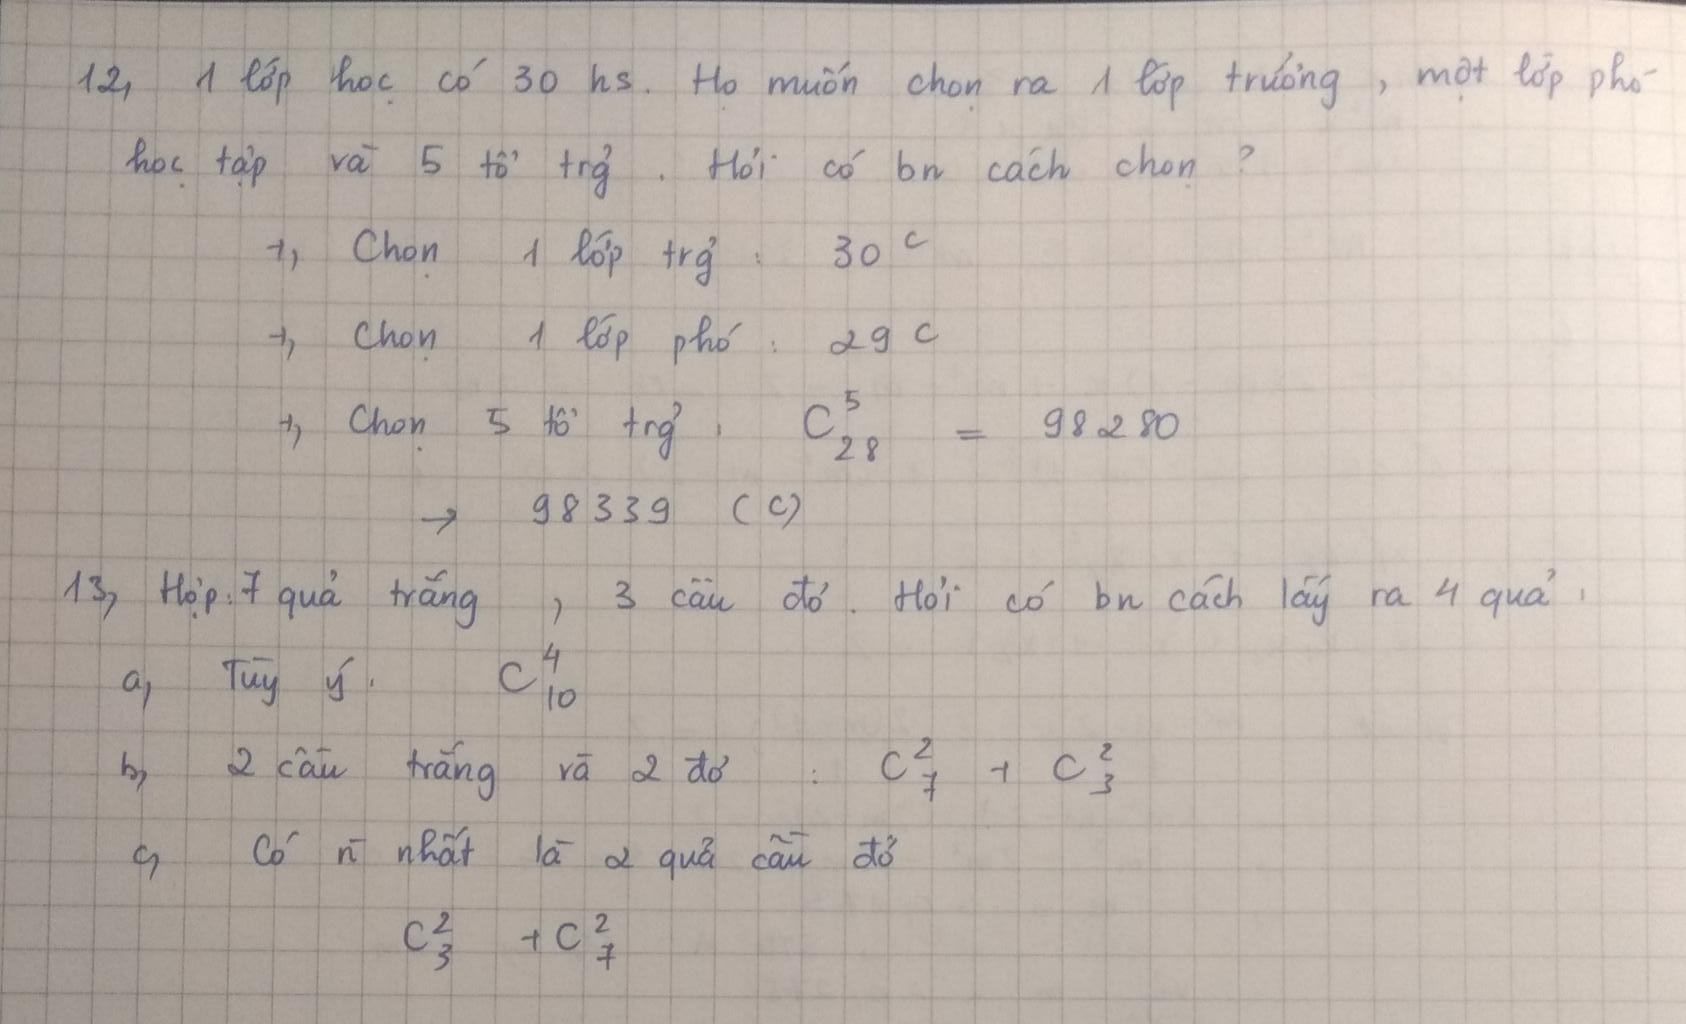 12, 1 lớp học có 30 hs. Họ muốn chọn ra 1 lớp trưởng, một lớp phó
học tập và 5 tổ trg̉. Hỏi có bn cách chọn?
+, Chọn 1 lớp trg̉: 30 c
+, Chọn 1 lớp phó: 29 c
+, Chọn 5 tổ trg̉: C⁵₂₈ = 98280
→ 98339 (c)
13, Hộp: 7 quả trắng, 3 cầu đỏ. Hỏi có bn cách lấy ra 4 quả:
a, Tùy ý. C⁴₁₀
b, 2 cầu trắng và 2 đỏ: C²₇ + C²₃
c, Có n̄ nhất là 2 quả cầu đỏ
C²₃ + C²₇